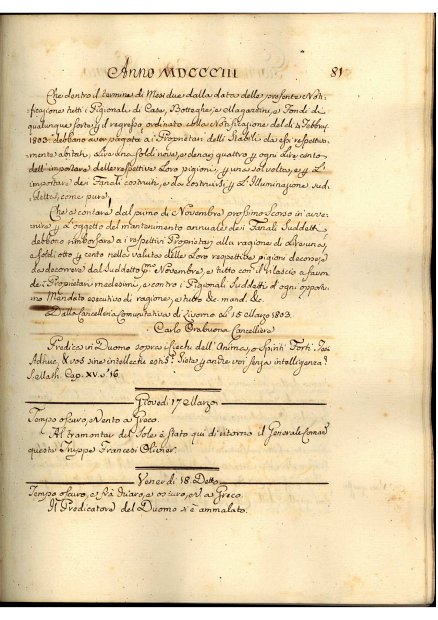 Anno MDCCCIII 81
Che dentro il termine di Mesi due dalla data della presente Noti-
ficazione tutti i Pigionali di Case, Botteghe, e Magazzini, e Fondi di
qualunque sorte p il regresso ordinato colla Notificazione del dì 4 Febbr.
1803. debbano aver pagato a i Proprietari delli Stabili da essi respettiva-
mente abitati, Lire una soldi nove, e denari quattro p ogni Lire cento
dell'importare delle respettive Loro pigioni, p una sol volta, e p L'
importare dei Fanali costruiti, e da costruirsi p L'Illuminazione sud-
detta, come pure
Che a contare dal primo di Novembre prossimo scorso in avve-
nire p L'oggetto del mantenimento annuale de i Fanali Suddetti
debbono rimborsare a i respettivi Proprietari alla ragione di Lire una,
e soldi otto p cento nella valuta delle Loro respettive pigioni decorse, e
da decorrere dal Suddetto Novembre, e tutto con il rilascio a favore
de i Proprietari medesimi, e contro i Pigionali Suddetti d'ogni opportu-
no Mandato esecutivo di ragione, e tutto &c. mand. &c.
Dalla Cancelleria Comunitativa di Livorno Li 15 Marzo 1803.
Carlo Ombuona Cancelliere
Predica in Duomo sopra i ciechi dell'Anima, o Spiriti Forti.
Adhuc, & vos sine intellectu estis? Siete p anche voi senza intelligenza?
S. Matth. Cap. XV. v. 16.
Giovedì 17 Marzo
Tempo oscuro, Vento a Greco.
Al tramontar del Sole è stato qui di ritorno il Generale Coman.
questa Truppe Francesi Olivier.
Venerdì 18. Detto
Tempo oscuro, e chiaro, e oscuro, V. a Greco.
Il Predicatore del Duomo si è ammalato.